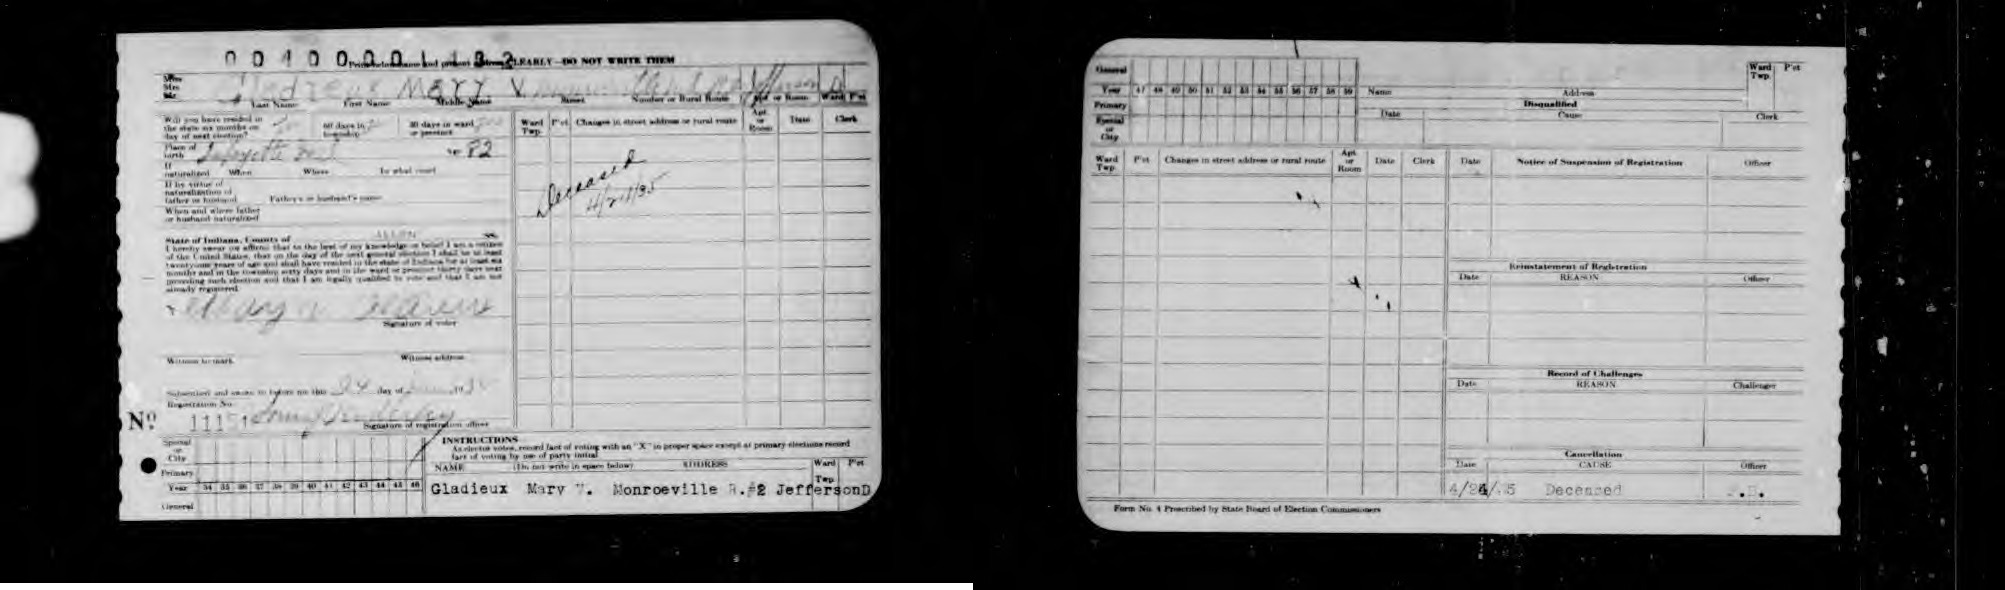 00400001182
Print below name and present address CLEARLY—DO NOT WRITE THEM
Miss
Mrs.
Mr.
Gladieux Mary V.
Last Name First Name Middle Name Street Number or Rural Route Apt. or Room Ward P'ct
Will you have resided in
the state six months on
day of next election?
60 days in
township
30 days in ward
or precinct
Place of
birth Lafayette Ind
Age 82
If
naturalized When Where In what court
If by virtue of
naturalization of
father or husband Father's or husband's name
When and where father
or husband naturalized
State of Indiana, County of ALLEN ss.
I hereby swear (or affirm) that to the best of my knowledge or belief I am a citizen
of the United States, that on the day of the next general election I shall be at least
twenty-one years of age and shall have resided in the state of Indiana for at least six
months and in the township sixty days and in the ward or precinct thirty days next
preceding such election and that I am legally qualified to vote and that I am not
already registered.
Mary
Signature of voter
Witness to mark Witness address
Subscribed and sworn to before me this 24 day of 19
Registration No.
No. 11151
Signature of registration officer
Ward
Twp.
P'ct
Changes in street address or rural route
Apt.
or
Room
Date
Clerk
Deceased
4/24/35
Special
or
City
Primary
Year 34 35 36 37 38 39 40 41 42 43 44 45 46
General
INSTRUCTIONS
As elector votes, record fact of voting with an "X" in proper space except at primary elections record
fact of voting by use of party initial
NAME (Do not write in space below) ADDRESS Ward Twp. P'ct
Gladieux Mary V. Monroeville R.#2 Jefferson D
General
Year 47 48 49 50 51 52 53 54 55 56 57 58 59
Primary
Special
or
City
Name Address
Ward
Twp.
P'ct
Disqualified
Date Cause Clerk
Ward
Twp.
P'ct
Changes in street address or rural route
Apt.
or
Room
Date
Clerk
Date Notice of Suspension of Registration Officer
Reinstatement of Registration
Date REASON Officer
Record of Challenges
Date REASON Challenger
Cancellation
Date CAUSE Officer
4/24/35 Deceased
Form No. 4 Prescribed by State Board of Election Commissioners